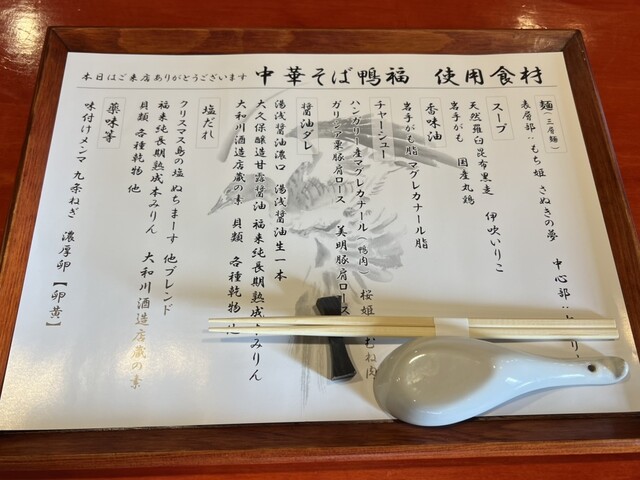 本日はご来店ありがとうございます 中華そば鴨福 使用食材
麺(三層麺)
表層部:もち姫 さぬきの夢 中心部:
スープ
天然羅臼昆布黒走 伊吹いりこ
岩手がも 国産丸鶏
香味油
岩手がも脂 マグレカナール脂
チャーシュー
ハンガリー産マグレカナール(鴨肉) 桜姫 むね肉
ガリシア栗豚肩ロース 美明豚肩ロース
醤油ダレ
湯浅醤油濃口 湯浅醤油生一本
大久保醸造甘露醤油 福来純長期熟成本みりん
大和川酒造店蔵の素 貝類 各種乾物 他
塩だれ
クリスマス島の塩 ぬちまーす 他ブレンド
福来純長期熟成本みりん 大和川酒造店蔵の素
貝類 各種乾物 他
薬味等
味付けメンマ 九条ねぎ 濃厚卵【卵黄】